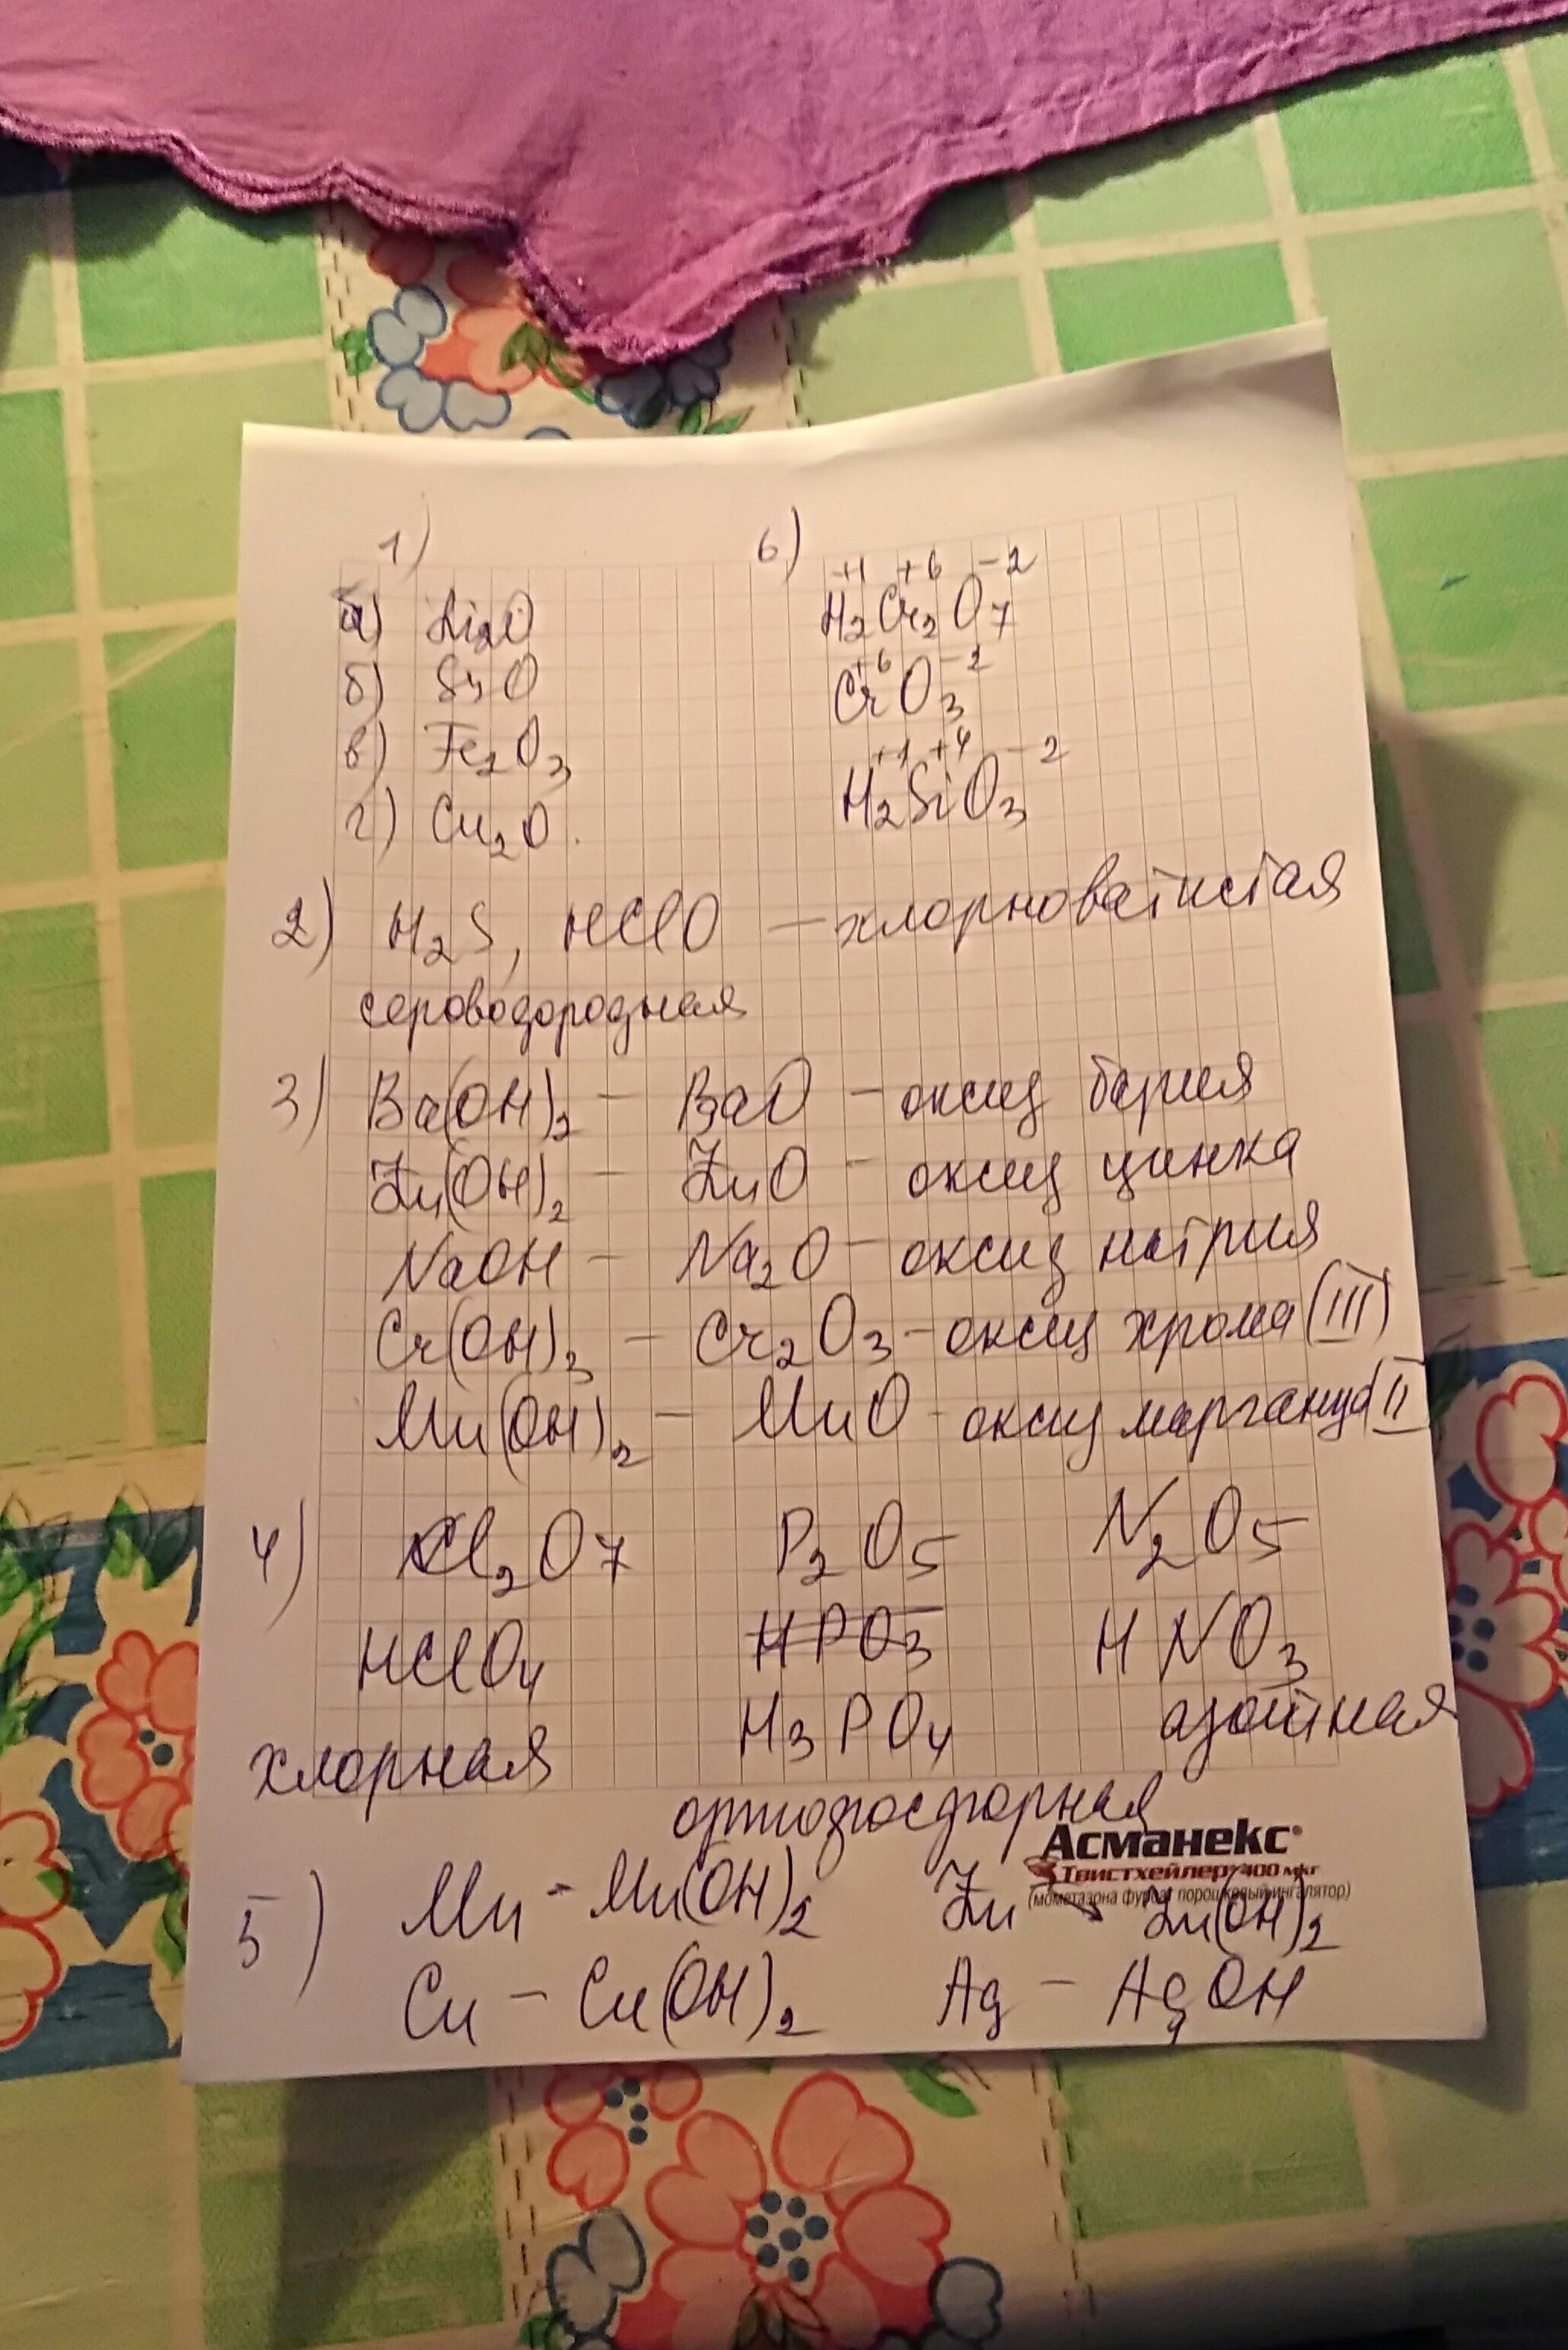 1)
а) Li₂O
б) SnO
в) Fe₂O₃
г) Cu₂O.
6)
+1 +6 -2
H₂Cr₂O₇
+6 -2
CrO₃
+1 +4 -2
H₂SiO₃
2) H₂S, HClO — хлорноватистая
сероводородная
3) Ba(OH)₂ — BaO — оксид бария
Zn(OH)₂ — ZnO — оксид цинка
NaOH — Na₂O — оксид натрия
Cr(OH)₃ — Cr₂O₃ — оксид хрома (III)
Mn(OH)₂ — MnO - оксид марганца (II)
4) Cl₂O₇ P₂O₅ N₂O₅
HClO₄ HPO₃ HNO₃
H₃PO₄ азотная
хлорная
ортофосфорная
Асманекс®
Твистхейлер® 400 мкг
(мометазона фуроат порошковый ингалятор)
5) Mn - Mn(OH)₂ Zn → Zn(OH)₂
Cu — Cu(OH)₂ Ag — AgOH